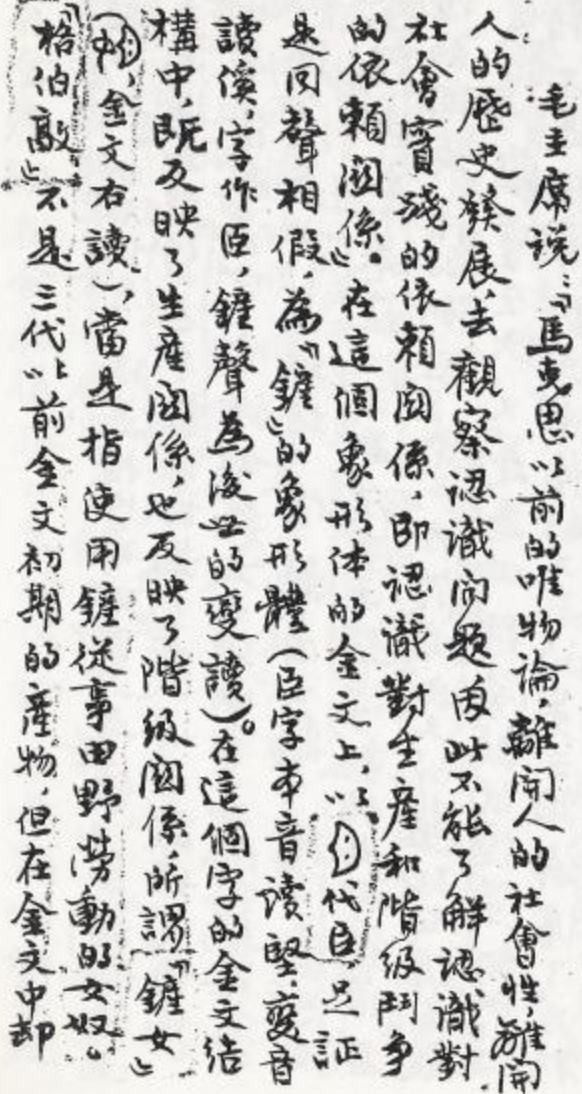 毛主席説：「馬克思以前的唯物論，離開人的社會性，離開
人的歷史發展，去觀察認識問題，因此不能了解認識對
社會實踐的依賴関係，即認識對生產和階級鬥爭
的依賴関係。」在這個象形体的金文上，以代臣，足証
是同聲相假，為「鏟」的象形體（臣字本音讀堅，變音
讀傒，字作臣，鏟聲為後世的變讀）。在這個字的金文结
構中，既反映了生產関係，也反映了階級関係，所謂「鏟女」
（，金文右讀），當是指使用鏟從事田野勞動的女奴。
「格伯敦」不是三代以前金文初期的產物，但在金文中却